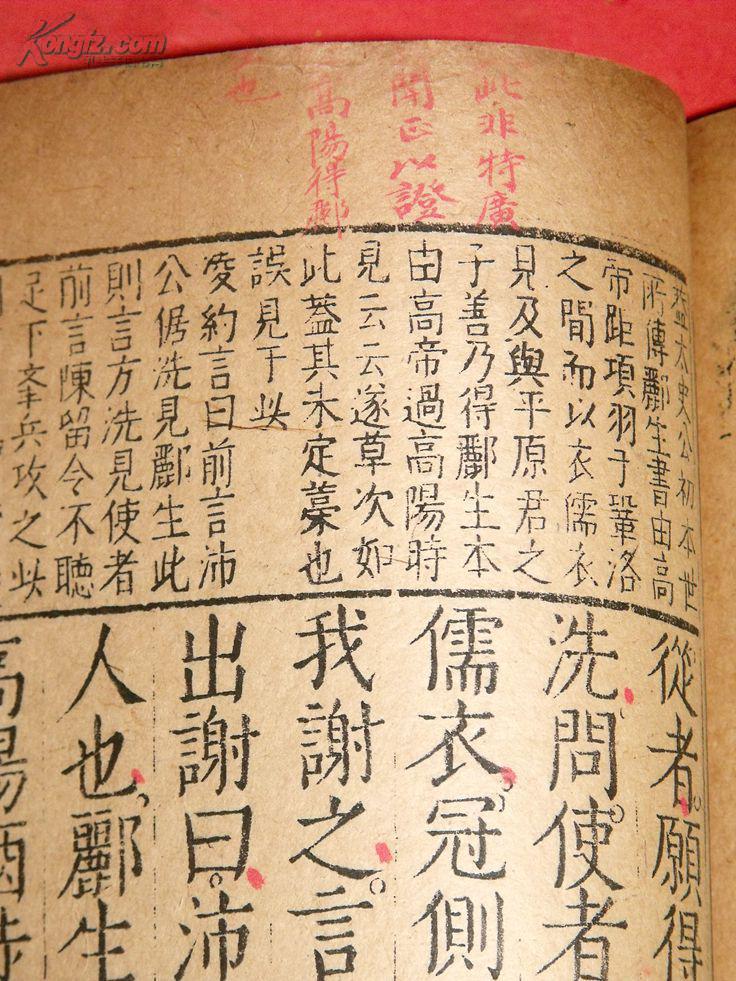 Kongfz.com
此非特廣
聞正以證
高陽得酈
也
蓋太史公初本世
所傳酈生書由高
帝距項羽于鞏洛
之間而以衣儒衣
見及與平原君之
子善乃得酈生本
由高帝過高陽時
見云云遂草次如
此蓋其未定藁也
誤見于此
凌約言曰前言沛
公倨洗見酈生此
則言方洗見使者
前言陳留令不聽
足下舉兵攻之此
從者。願得
洗。問使者
儒衣。冠側
我謝之。言
出謝曰。沛
人也。酈生
高陽酒徒